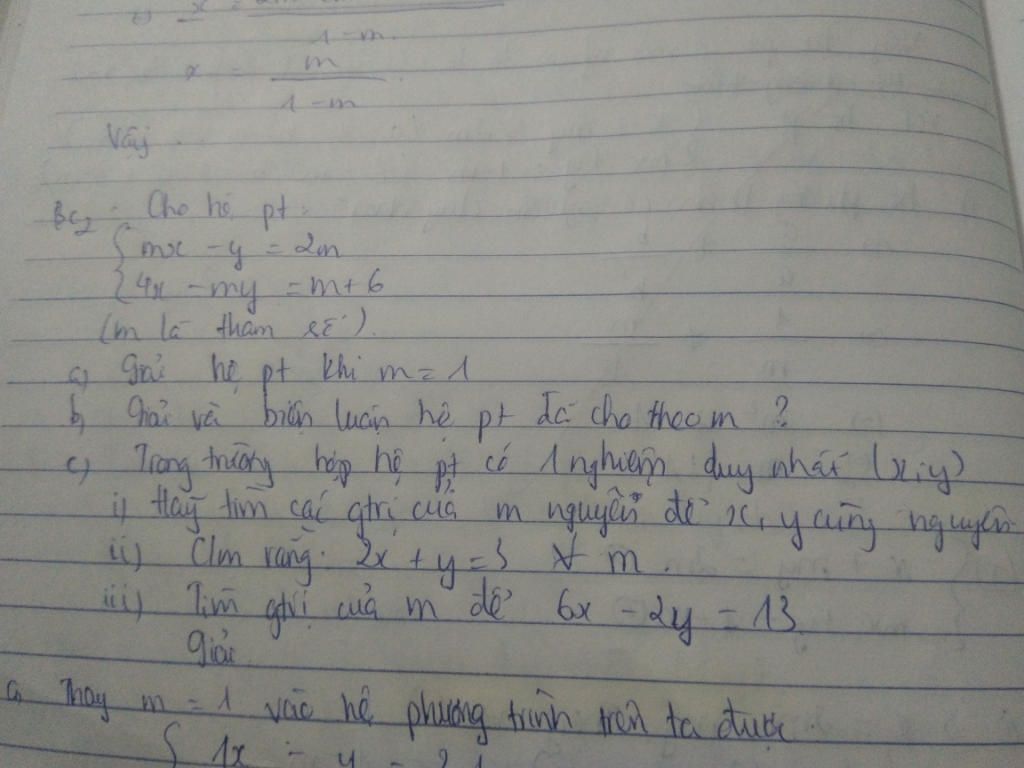 1 - m.
x = m
1 - m
Vậy
Bc2 . Cho hệ pt :
{ mx - y = 2m
{ 4x - my = m + 6
(m là tham số).
a) Giải hệ pt khi m = 1
b) Giải và biện luận hệ pt đã cho theo m ?
c) Trong trường hợp hệ pt có 1 nghiệm duy nhất (x, y)
i) Hãy tìm các gtrị của m nguyên để x, y cùng nguyên.
ii) Cm rằng: 2x + y = 3 ∀ m.
iii) Tìm gtrị của m để 6x - 2y = 13.
Giải.
a, Thay m = 1 vào hệ phương trình trên ta được.
{ 1x - y = 2.1